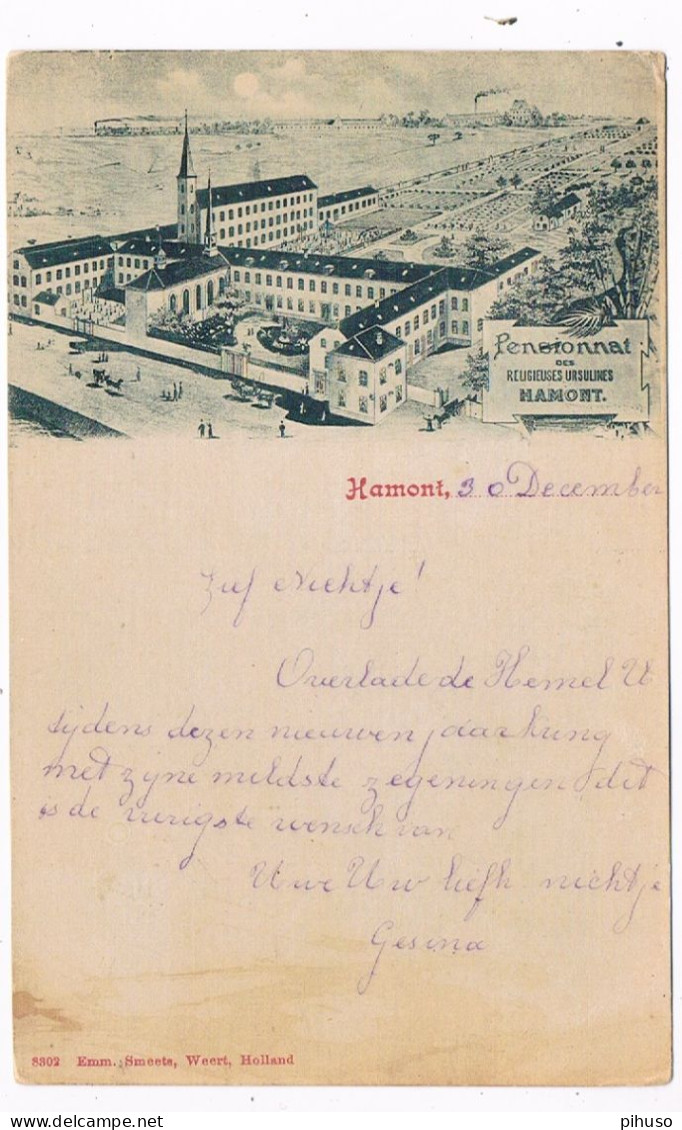 Pensionnat
DES
RELIGIEUSES URSULINES
HAMONT.
Hamont, 30 December
Lief Nichtje!
Overlade de Hemel U
tijdens dezen nieuwen jaarkring
met zijne mildste zegeningen dit
is de vurigste wensch van
Uwe U w liefh nichtje
Gesina
8302 Emm. Smeets, Weert, Holland
pihuso